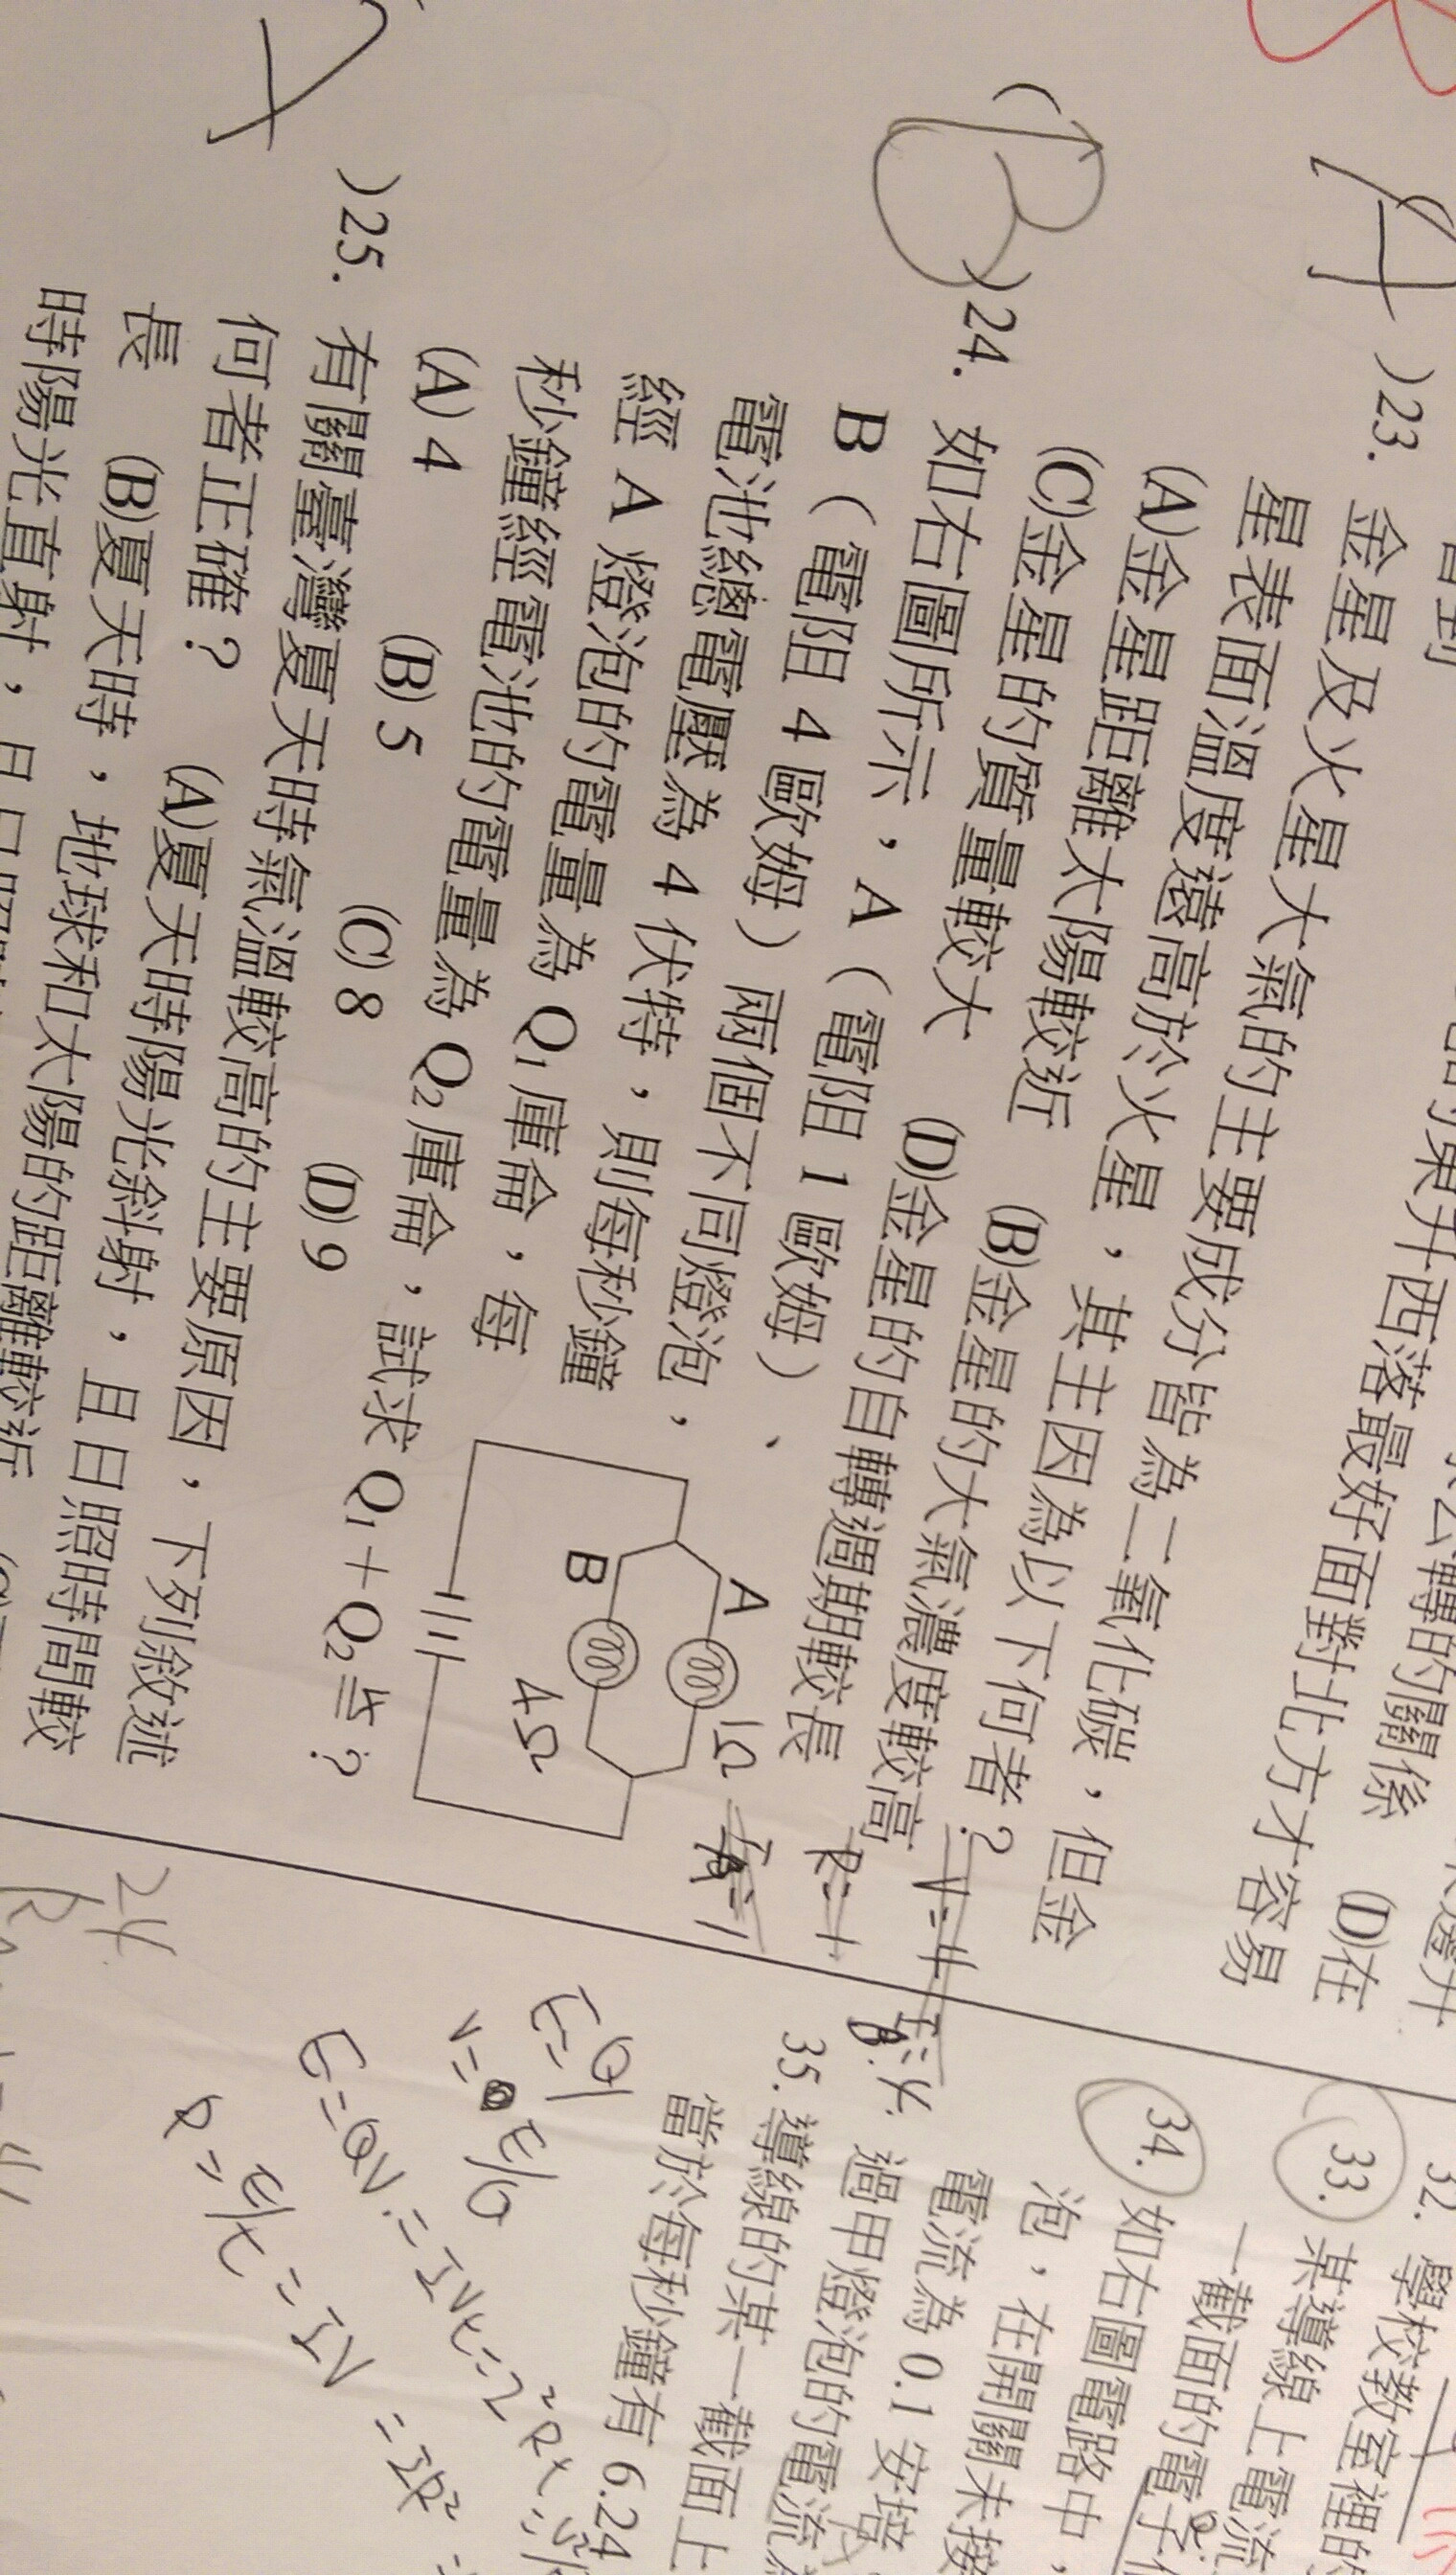 看到
的東升西落最好面對北方才容易
(D)在
)23. 金星及火星大氣的主要成分皆為二氧化碳,但金
星表面溫度遠高於火星,其主因為以下何者?
(A)金星距離太陽較近 (B)金星的大氣濃度較高
(C)金星的質量較大 (D)金星的自轉週期較長
(B)24. 如右圖所示,A(電阻 1 歐姆)、
B(電阻 4 歐姆)兩個不同燈泡,
電池總電壓為 4 伏特,則每秒鐘
經 A 燈泡的電量為 Q1 庫侖,每
秒鐘經電池的電量為 Q2 庫侖,試求 Q1 + Q2 = ?
(A) 4 (B) 5 (C) 8 (D) 9
A
1Ω
B
4Ω
V=4
R=1
)25. 有關臺灣夏天時氣溫較高的主要原因,下列敘述
何者正確? (A)夏天時陽光斜射,且日照時間較
長 (B)夏天時,地球和太陽的距離較近
時陽光直射,且日照
32. 學校教室裡的
33. 某導線上電流
一截面的電子
34. 如右圖電路中,
泡,在開關未接
電流為 0.1 安培
過甲燈泡的電流
35. 導線的某一截面上
當於每秒鐘有 6.24
V=E/Q
E=QV=IVt=I²Rt
P=E/t=IV=I²R
24